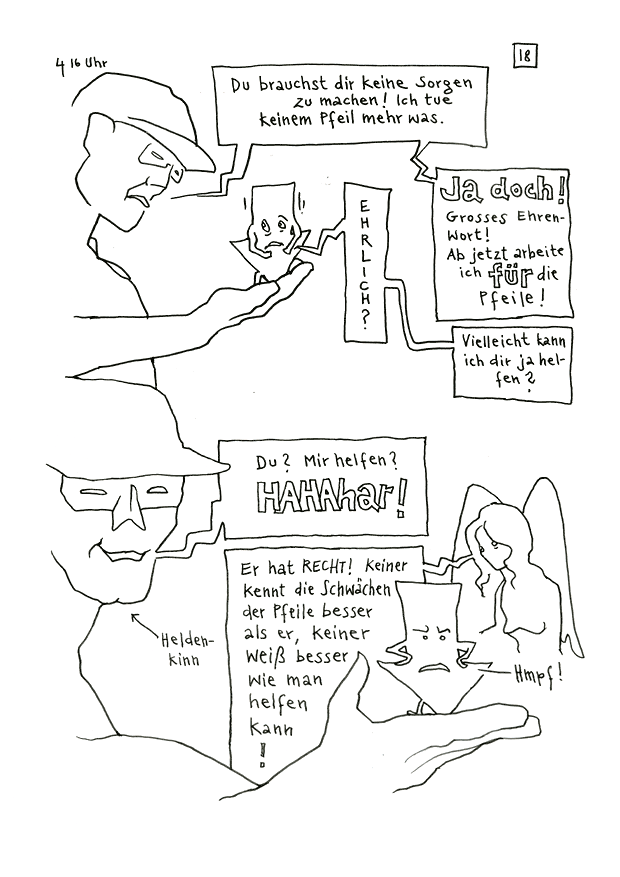 4 16 Uhr
18
Du brauchst dir keine Sorgen
zu machen! Ich tue
keinem Pfeil mehr was.
Ja doch!
Grosses Ehren-
wort!
Ab jetzt arbeite
ich für die
Pfeile!
EHRLICH?
Vielleicht kann
ich dir ja hel-
fen?
Du? Mir helfen?
HAHAhar!
Er hat RECHT! Keiner
kennt die Schwächen
der Pfeile besser
als er, keiner
weiß besser
wie man
helfen
kann
!
Helden-
kinn
Hmpf!